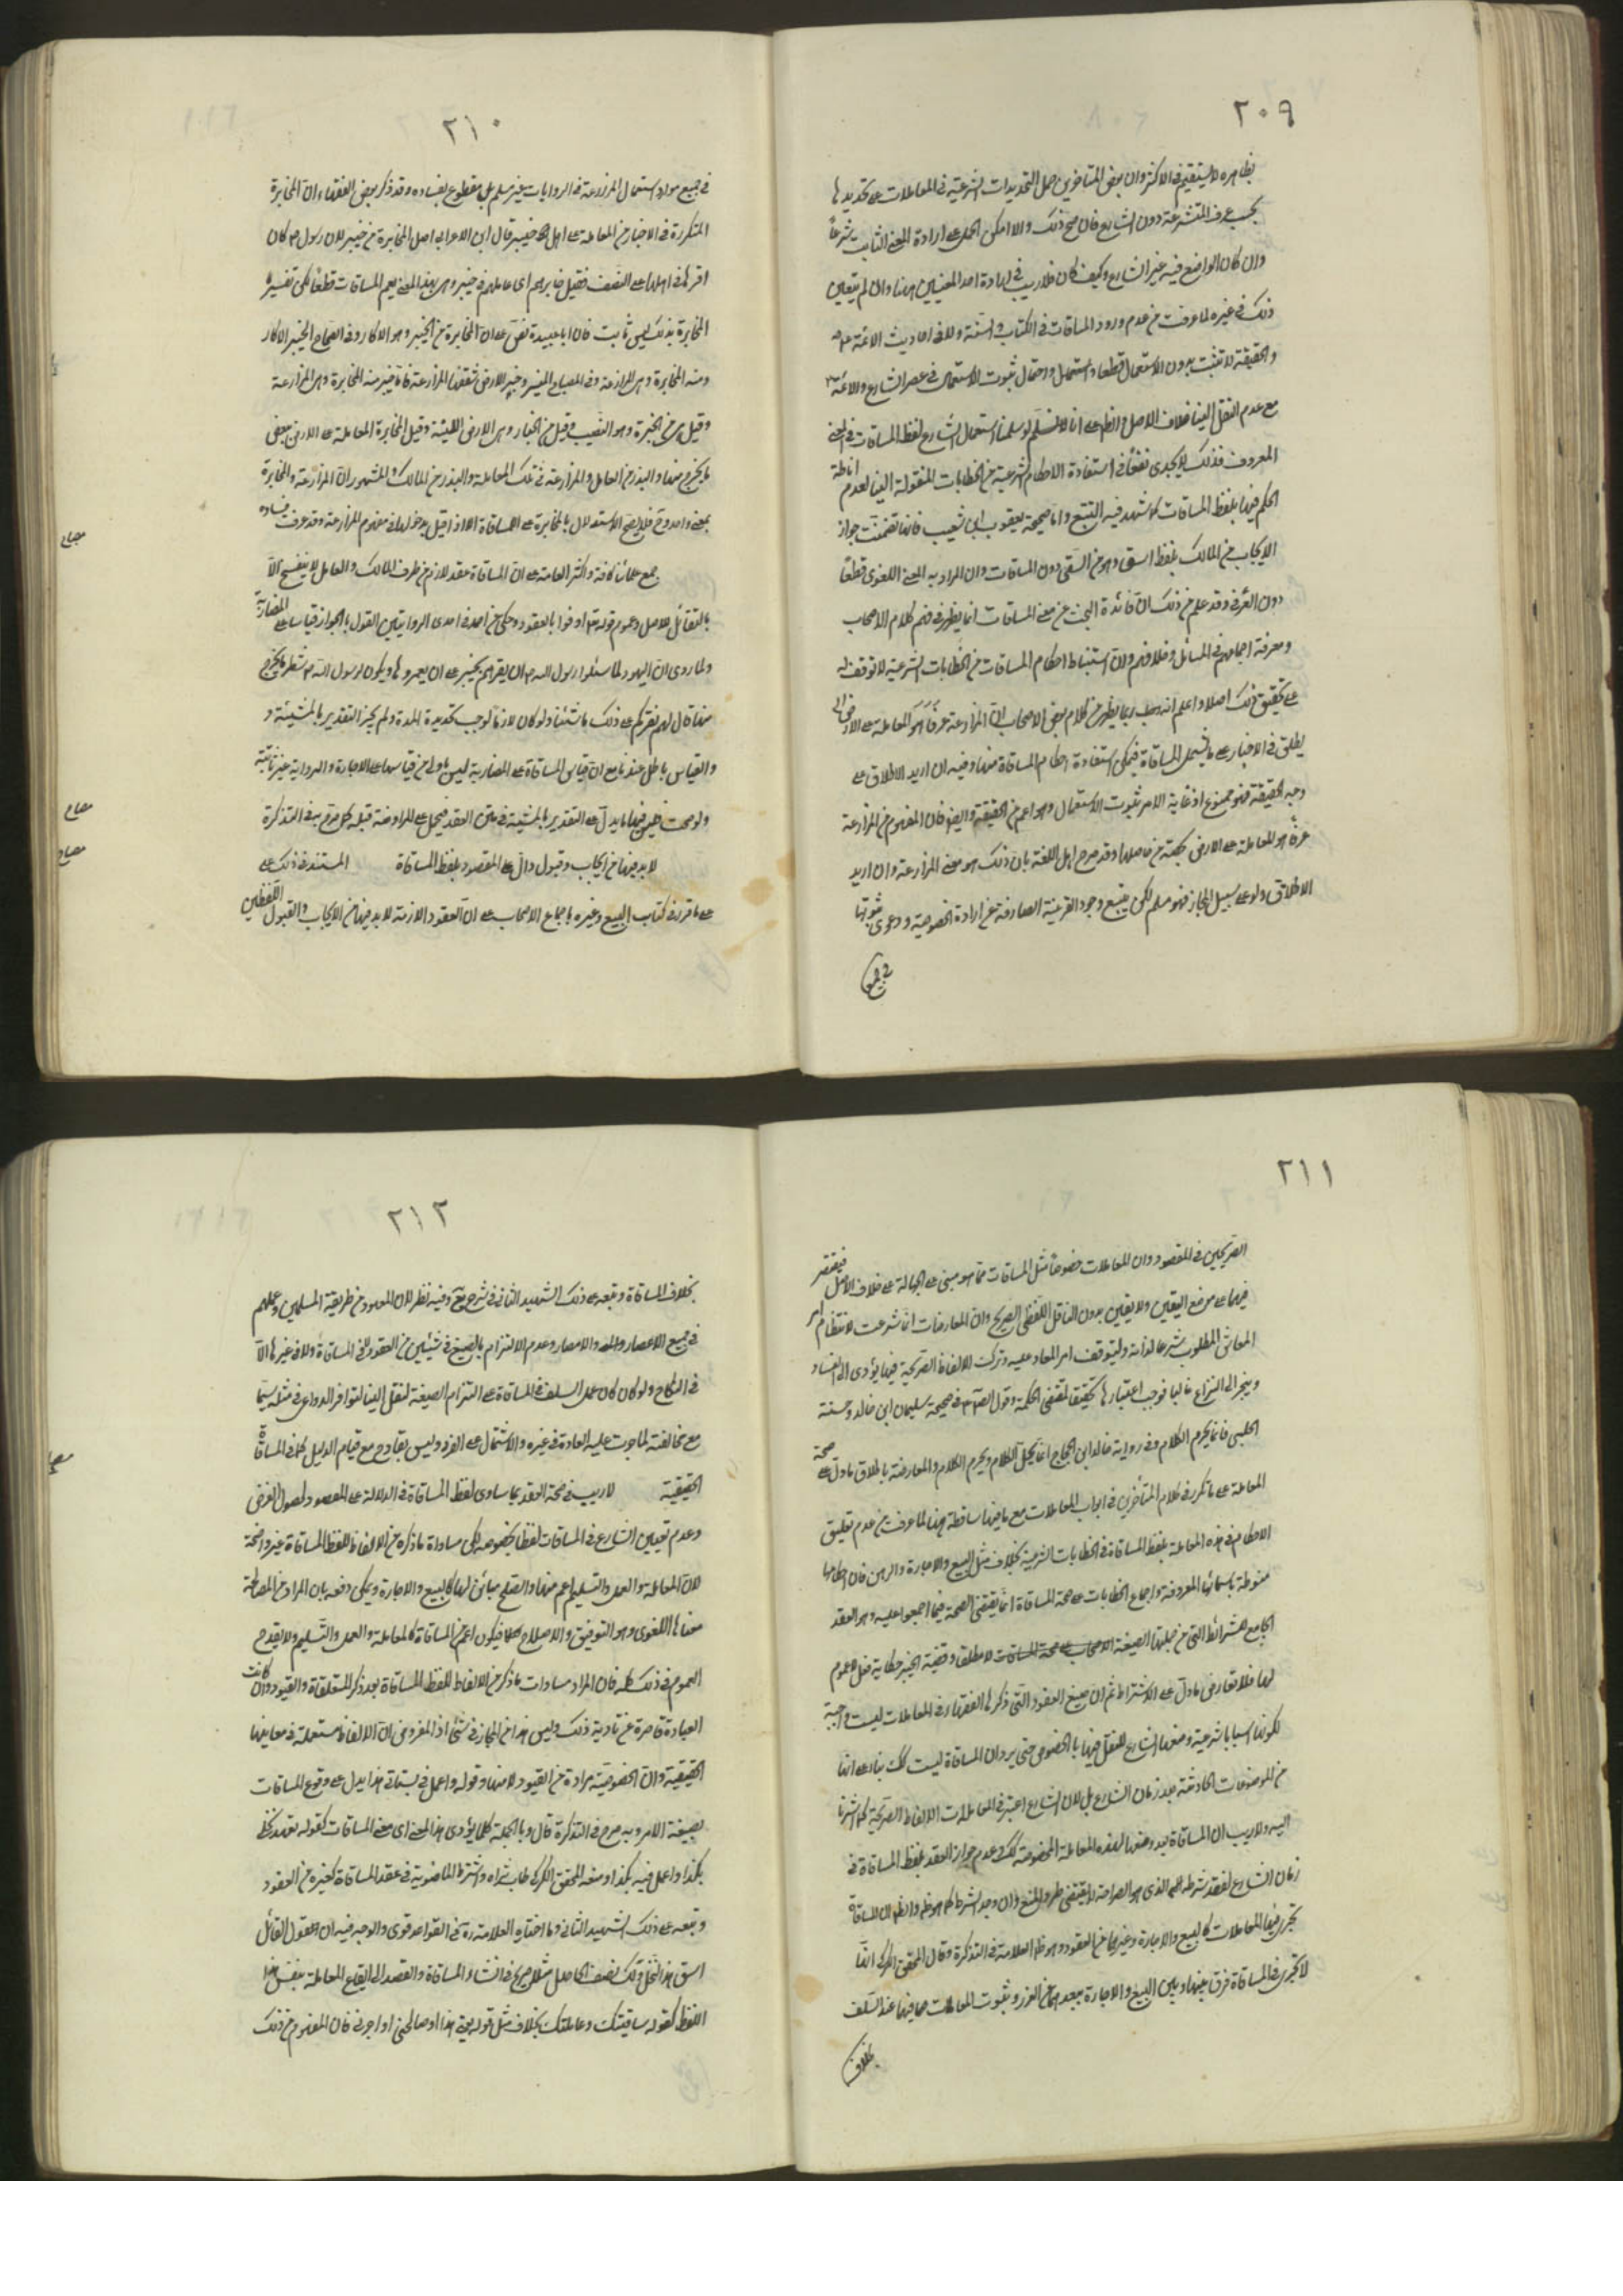 ٢٠٩
بظاهره لا يستقيم في الاكثر وان بعض المتاخرين حمل التحديدات الشرعية في المعاملات على تحديدها
بحسب عرف المتشرعة دون الشارع فان صح ذلك والا امكن الحمل على ارادة المعنى الثابت شرعاً
وان كان الواضع فيه غير الشارع وكيف كان فلا ريب في ارادة احد المعنيين هنا وان لم يتعين
ذلك في غيره لما عرفت من عدم ورود المساقات في الكتاب والسنة ولا في احاديث الائمة ع
والحقيقة لا تثبت بدون الاستعمال قطعا واحتمال ثبوت الاستعمال في عصر الشارع والائمة ع
مع عدم النقل الينا خلاف الاصل والظ على انا لا نسلم لو سلمنا استعمال الشارع لفظ المساقات في المعنى
المعروف فذلك لا يجدى نفعاً في استفادة الاحكام الشرعية من الخطابات المنقولة الينا لعدم اناطة
الحكم فيها بلفظ المساقات كما شهد فيه التتبع واما صحيحة يعقوب ابن شعيب فانها تضمنت جواز
الايجاب من المالك بلفظ اسق وهو من السقى دون المساقات وان المراد به المعنى اللغوى قطعاً
دون العرفى وقد علم من ذلك ان فائدة البحث عن معنى المساقات انما يظهر في فهم كلام الاصحاب
ومعرفة اجماعهم في المسائل وخلافهم وان استنباط احكام المساقات من الخطابات الشرعية لا توقف له
على تحقيق ذلك اصلا واعلم انه ربما يظهر من كلام بعض الاصحاب ان المزارعة عرفاً هو المعاملة على الارض
يطلق في الاخبار على ما يشمل المساقاة فيمكن استفادة احكام المساقاة منها وفيه ان اريد الاطلاق على
وجه الحقيقة فهو ممنوع اذ غاية الامر ثبوت الاستعمال وهو اعم من الحقيقة وايضا فان المفهوم من المزارعة
عرفاً هو المعاملة على الارض بحصة من حاصلها وقد صرح اهل اللغة بان ذلك هو معنى المزارعة وان اريد
الاطلاق ولو على سبيل المجاز فهو مسلم لكن يتبع وجود القرينة الصارفة عن ارادة الخصوصية ودعوى ثبوتها
في جميع
٢١٠
في جميع موارد استعمال المزارعة في الروايات غير مسلم بل مقطوع بفساده وقد ذكر بعض الفقهاء ان المخابرة
المتكررة في الاخبار من المعاملة على اهل خيبر قال ابن الاعرابى اصل المخابرة من خيبر لان رسول ص كان
اقرها في اهلها على النصف فقيل خابرهم اى عاملهم في خيبر وهى بهذا المعنى يعم المساقات قطعاً لكن تفسير
المخابرة بذلك ليس ثابت فان ابا عبيدة نص على ان المخابرة من الخبير وهو الاكار وفى الصحاح الخبير الاكار
ومنه المخابرة وهى المزارعة وفى المصباح المنير وخبر الارض شققها للزراعة فانا خبير منه المخابرة وهى المزارعة
وقيل من الخبرة وهو النصيب وقيل من الخبار وهى الارض اللينة وقيل المخابرة المعاملة على الارض ببعض
ما يخرج منها والبذر من العامل والمزارعة فى تلك المعاملة والبذر من المالك والمشهور ان المزارعة والمخابرة
بمعنى واحد وح فلا يصح الاستدلال بالمخابرة على المساقاة الا اذا قيل بدخولها فى مفهوم المزارعة وقد عرفت فساده
مصباح
جمع علمائنا كافة واكثر العامة على ان المساقاة عقد لازم من طرف المالك والعامل لا ينفسخ الا
بالتقائل للاصل وعموم قوله تع اوفوا بالعقود وحكى عن احمد فى احدى الروايتين القول بالجواز قياسا على المضاربة
ولما روى ان اليهود لما سئلوا رسول الله ص ان يقرهم بخيبر على ان يعمروها ويكون لرسول الله ص شطر ما يخرج
منها قال لهم نقركم على ذلك ما شئنا ولو كان لازما لوجب تحديدة المدة ولم يجز التقدير بالمشيئة و
والقياس باطل عندنا مع ان قياس المساقاة على المضاربة ليس باولى من قياسها على الاجارة والرواية غير ثابتة
ولو صحت فليس فيها ما يدل على التقدير بالمشيئة فى متن العقد فيحمل على المراوضة قبله كما صرح به فى التذكرة
مصباح
لابد فيها من ايجاب وقبول دال على المقصود بلفظ المساقاة
مصباح
المستند فى ذلك على
على ما قرر فى كتاب البيع وغيره باجماع الاصحاب على ان العقود اللازمة لابد فيها من الايجاب والقبول اللفظين
٢١١
الصريحين فى المقصود وان المعاملات خصوصاً مثل المساقات مما هو مبنى على الجهالة على خلاف الاصل فيقتصر
فيها على موضع اليقين ولا يقين بدون الناقل اللفظى الصريح وان المعاوضات انما شرعت لانتظام امر
المعاش المطلوب شرعا لذاته وليتوقف امر المعاد عليه وتركت للالفاظ الصريحة فيها يؤدى الى الفساد
وينجر الى النزاع غالبا فوجب اعتبارها تحقيقا لمقتضى الحكمة وقول الص ع فى صحيحة سليمان ابن خالد وحسنة
الحلبى فانما يحرم الكلام وفى رواية خالد ابن الحجاج انما يحل الكلام ويحرم الكلام والمعارضة باطلاق ما دل على صحة
المعاملة على ما تكرر فى كلام المتأخرين فى ابواب المعاملات مع ما فيها ساقطة هنا لما عرفت من عدم تعليق
الاحكام فى هذه المعاملة بلفظ المساقاة فى الخطابات الشرعية بخلاف مثل البيع والاجارة والرهن فان احكامها
منوطة باسمائها المعروفة واجماع الخطابات على صحة المساقاة انما يقتضى الصحة فيما اجمعوا عليه وهو العقد
الجامع للشرائط التى من جملتها الصيغة لا مطلقا وقضية الخبر حكاية فعل لا عموم
لها فلا تعارض ما دل على الاشتراط ثم ان صيغ العقود التى ذكرها الفقهاء فى المعاملات ليست واجبة
لكونها اسبابا شرعية وضعها الشارع للنقل فيها بالخصوص حتى يرد ان المساقاة ليست كك بناء على انها
من الموضوعات الحادثة بعد زمان الشارع بل لان الشارع اعتبر فى المعاملات الالفاظ الصريحة كما اشرنا
اليه ولا ريب ان المساقاة بعد وضعها لهذه المعاملة المخصوصة كك وعدم جواز العقد بلفظ المساقاة فى
زمان الشارع لفقد شرطه الذى هو الصراحة لا يقتضى طرد المنع وان وجد الشرط كما هو ظ والظ ان المساقاة
تجرى فيها المعاملات كالبيع والاجارة وغيرهما من العقود وهو ظ العلامة فى التذكرة وقال المحقق الكركى انها
لا تجرى فى المساقاة فرق بينها وبين البيع والاجارة ببعدهما عن الغرر وثبوت المعاملات فيها عند السلف
بخلاف
٢١٢
بخلاف المساقاة وتبعه على ذلك الشهيد الثانى فى شرح يع وفيه نظر لان المعهود من طريقة المسلمين وعملهم
فى جميع الاعصار والامصار وعدم الالتزام بالصيغ فى شيئين من العقود لا فى المساقاة ولا فى غيرها الا
فى النكاح ولو كان كان عمل السلف فى المساقاة على التزام الصيغة لنقل الينا لتوافر الدواعى فى مثله سيما
مع مخالفته لما جرت عليه العادة فى غيره والاشتمال على الغرر وليس بقادح مع قيام الدليل كما فى المساقاة
الحقيقية
مصباح
لا ريب فى صحة العقد بما ساوى لفظ المساقاة فى الدلالة على المقصود لحصول الغرض
وعدم تعيين الشارع فى المساقات لفظا بخصوصه لكن مساواة ما ذكره من الالفاظ للفظ المساقاة غير واضحة
لان المعاملة والعمل والتسليم اعم منها والصلح مبائن لها كالبيع والاجارة ويمكن دفعه بان المراد من المصالحة
معناها اللغوى وهو التوفيق والاصلاح فيكون اعم من المساقاة كالمعاملة والعمل والتسليم ولا يقدح
العموم فى ذلك كله فان المراد مساوات ما ذكر من الالفاظ للفظ المساقاة بعد ذكر المتعلقاة والقيود وان كانت
العبادة قاصرة عن تادية ذلك وليس هذا من المجاز فى شئ اذ المفروض ان الالفاظ مستعملة فى معانيها
الحقيقية وان الخصوصية مرادة من القيود لا منها وقوله واعمل فى بستانى هذا يدل على وقوع المساقات
بصيغة الامر وبه صرح فى التذكرة قال وبالجملة كلما يؤدى هذا المعنى اى معنى المساقات كقوله تعهد نخلى
بكذا واعمل فيه بكذا ومنعه المحقق الكركى طاب ثراه واشترط الماضوية فى عقد المساقاة كغيره من العقود
وتبعه على ذلك الشهيد الثانى وما اختاره العلامة ره فى القواعد قوى والوجه فيه ان العقول القائل
اسق هذا النخل ولك نصف الحاصل مثلا صريح فى انشاء المساقاة والقصد الى ايقاع المعاملة بنفس هذا
اللفظ كقوله ساقيتك وعاملتك بخلاف مثل قوله بعنى هذا او صالحنى او اجرنى فان المفهوم من ذلك